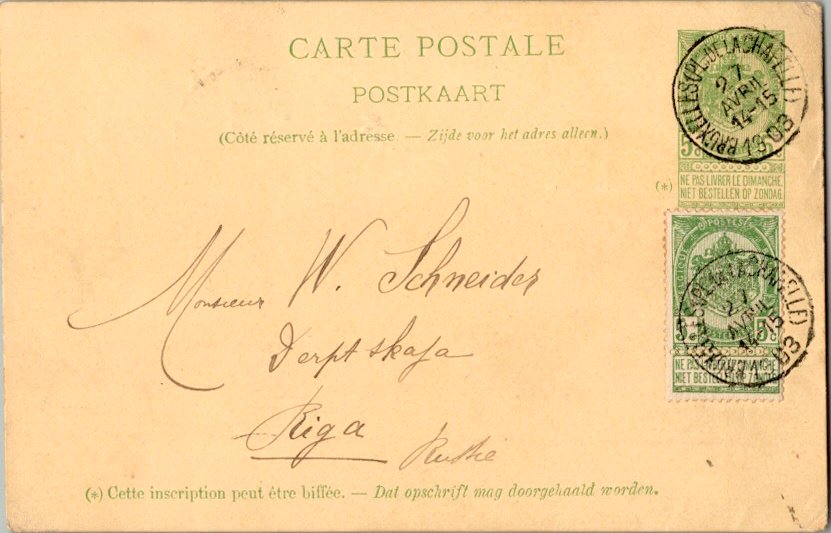 CARTE POSTALE
POSTKAART
(Côté réservé à l'adresse — Zijde voor het adres alleen.)
BRUXELLES (PL. DE LA CHAPELLE)
27
AVRIL
14-15
1903
5
(*) NE PAS LIVRER LE DIMANCHE.
NIET BESTELLEN OP ZONDAG.
POSTES
5 5
27
AVRIL
14-15
03
NE PAS LIVRER LE DIMANCHE
NIET BESTELLEN OP ZONDAG
Monsieur W. Schneider
Derptskaja
Riga
Russie
(*) Cette inscription peut être biffée. — Dat opschrift mag doorgehaald worden.